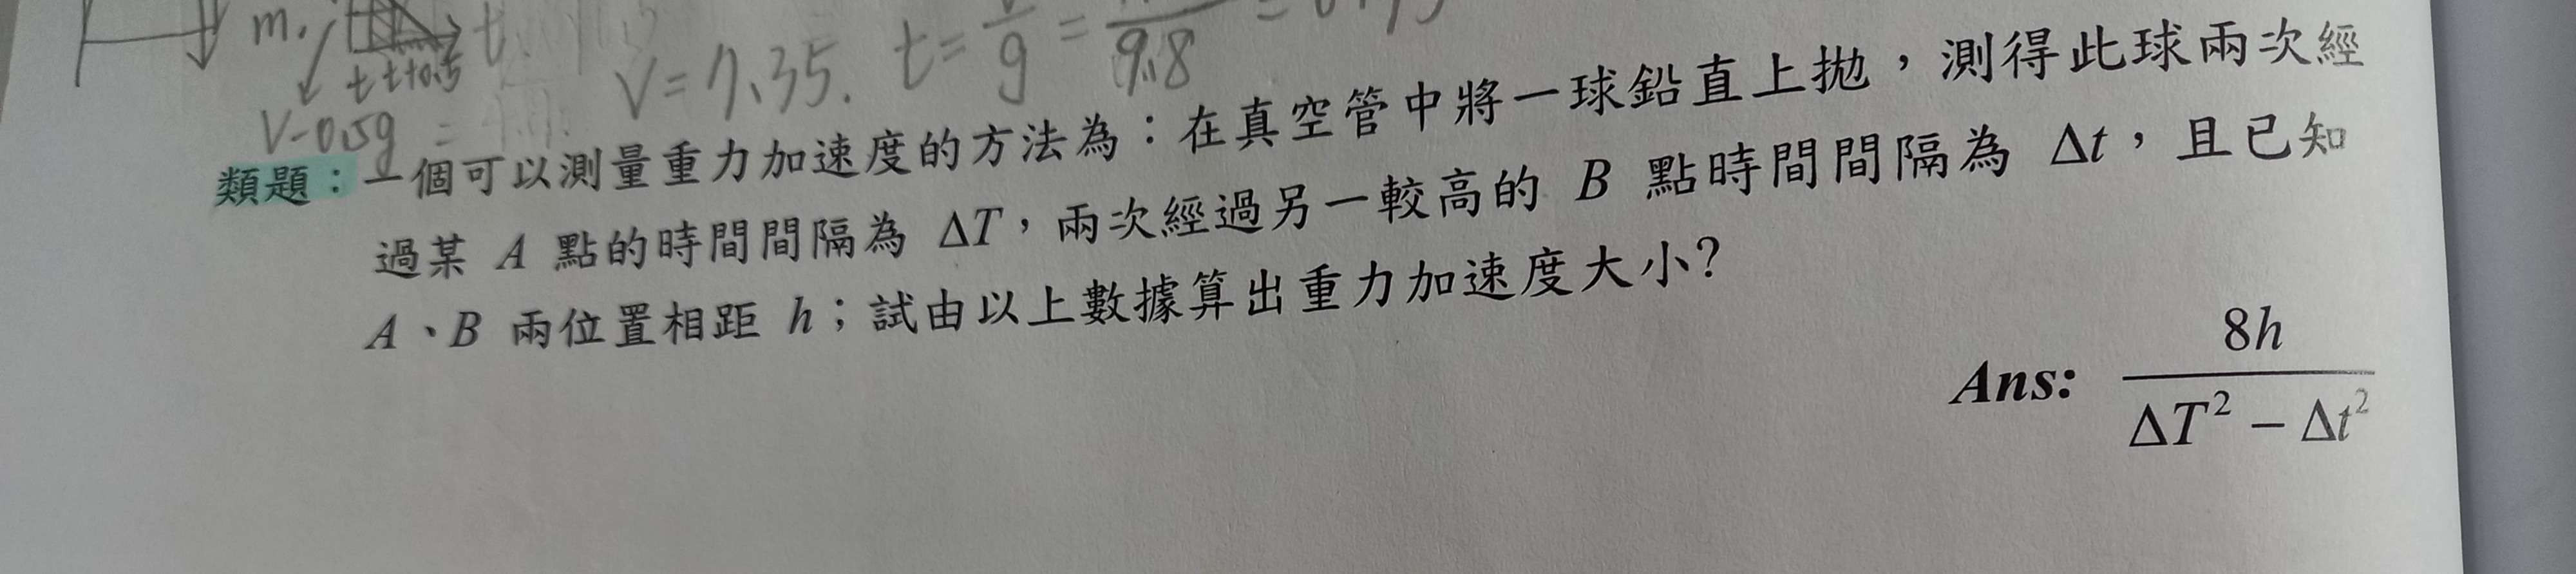 m.
t t+0.5
t
V-0.5g =
V=7.35. t= —/g = —/9.8 =
類題：一個可以測量重力加速度的方法為：在真空管中將一球鉛直上拋，測得此球兩次經
過某 A 點的時間間隔為 ΔT，兩次經過另一較高的 B 點時間間隔為 Δt，且已知
A、B 兩位置相距 h；試由以上數據算出重力加速度大小？
Ans: 8h / (ΔT² − Δt²)